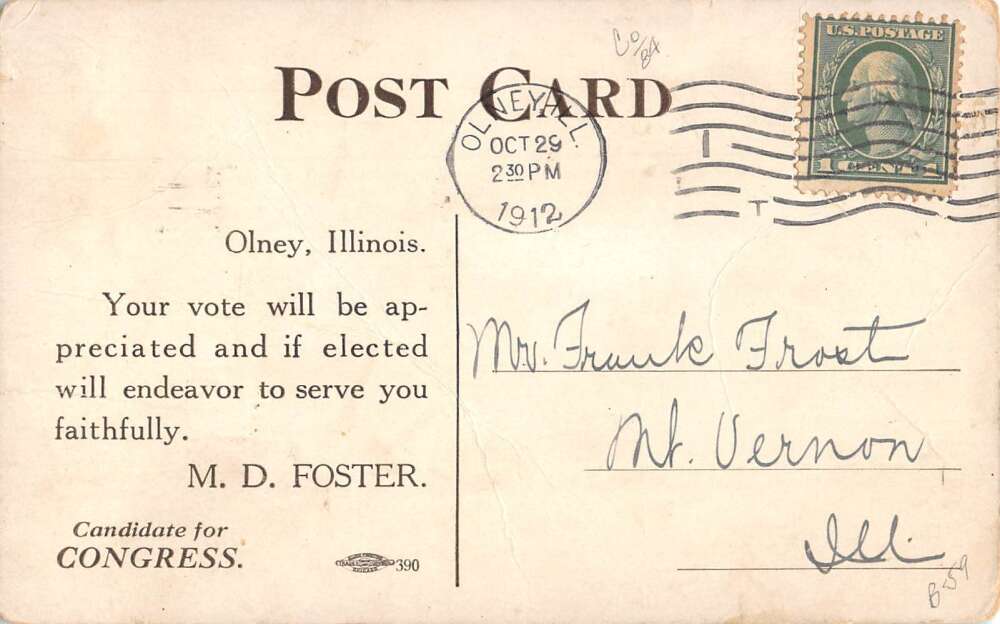 Co/84
POST CARD
U.S. POSTAGE
1 CENT 1
OLNEY, ILL.
OCT 29
2 30 PM
1912
Olney, Illinois.
Your vote will be ap-
preciated and if elected
will endeavor to serve you
faithfully.
M. D. FOSTER.
Candidate for
CONGRESS.
390
Mr. Frank Frost
Mt. Vernon
Ill.
B-59